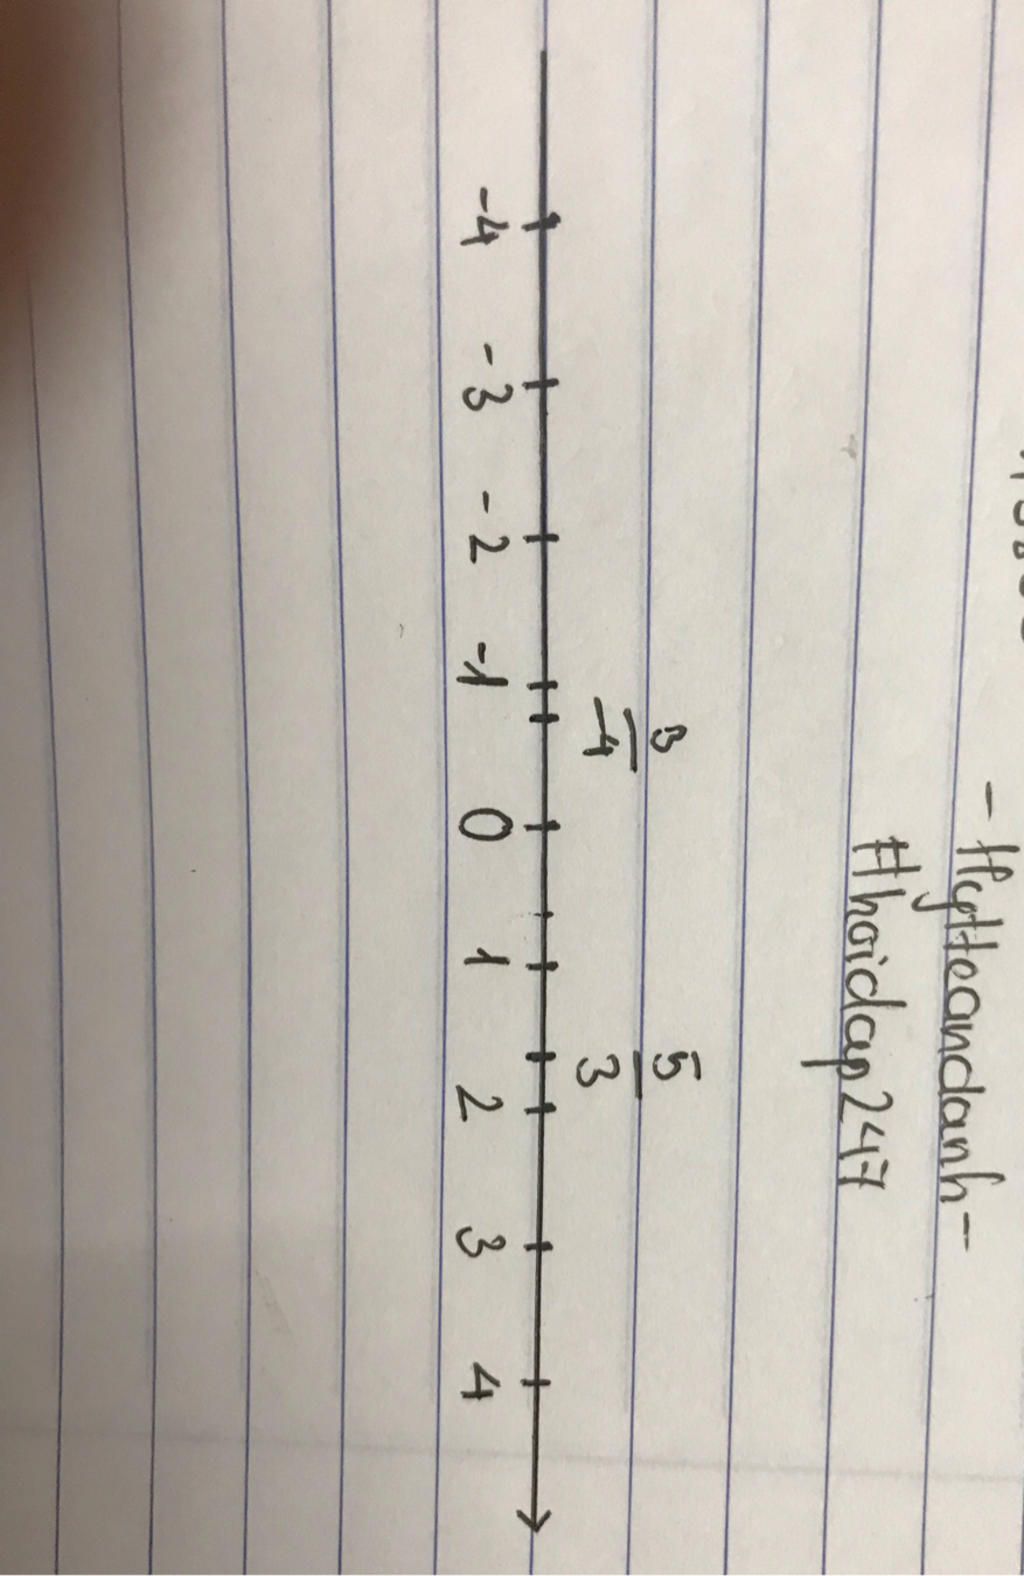 - Hyftteandanh -
#hoidap247
3 5
-4 3
-4 -3 -2 -1 0 1 2 3 4